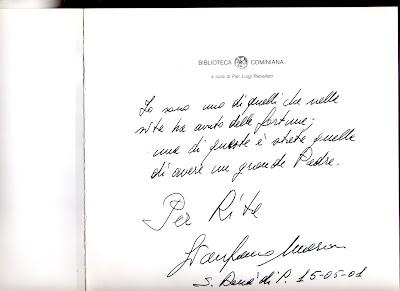 BIBLIOTECA COMINIANA
a cura di Pier Luigi Rebellato
Io sono uno di quelli che nella
vita ha avuto delle fortune;
una di queste è stata quella
di avere un grande Padre.
Per Rita
S. Donà di P. 15-05-01